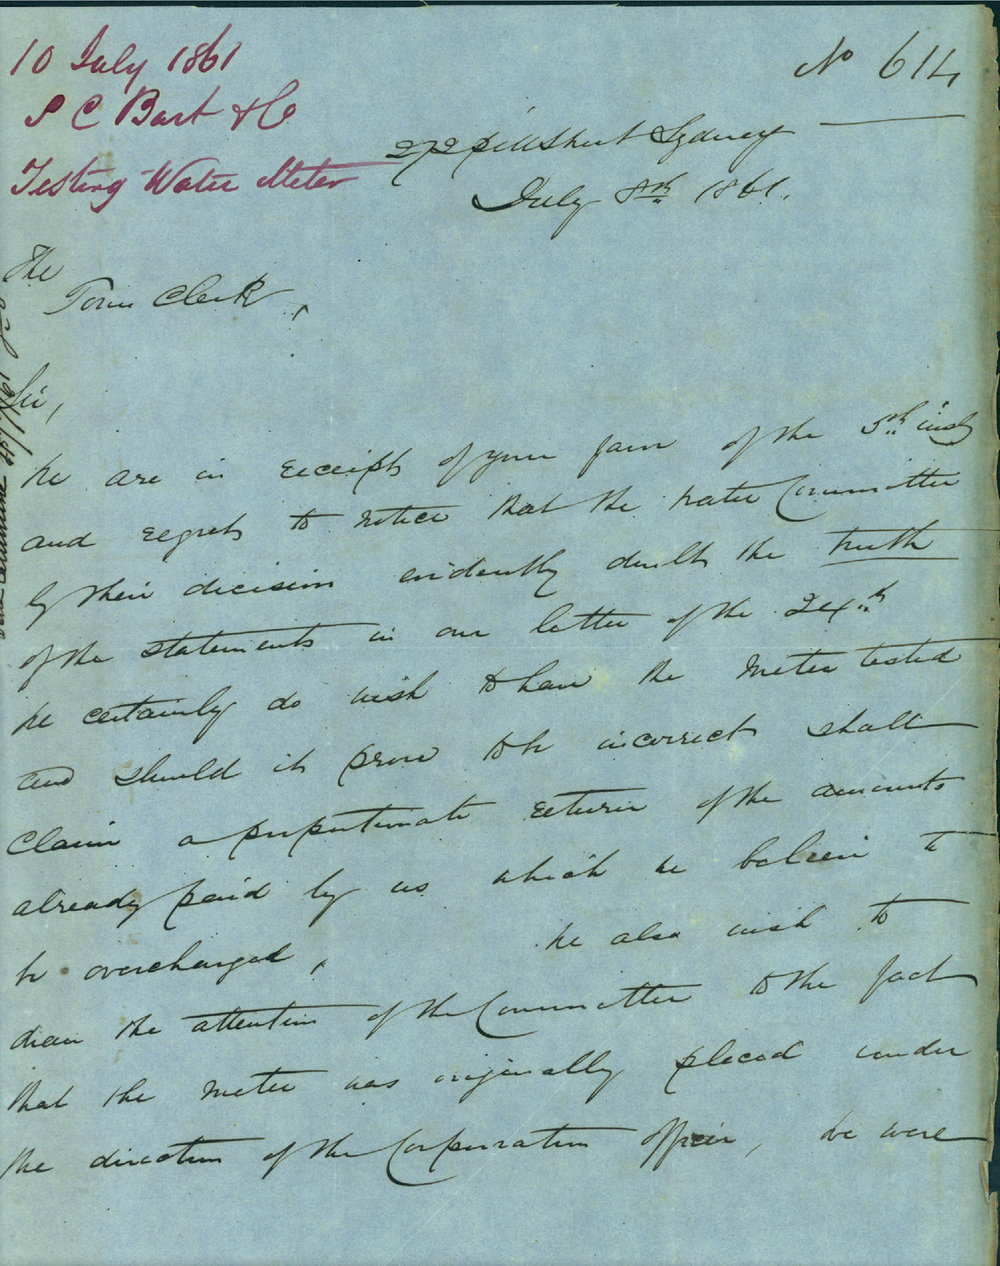 10 July 1861
S C Bart & Co
Testing Water Meter
No 614
272 pitt Street Sydney
July 8th 1861.
The
Town Clerk,
Sir,
We are in receipt of your favor of the 5th inst
and regret to notice that the Water Committee
by their decision evidently doubt the truth
of the statements in our letter of the 24th
We certainly do wish to have the Meter tested
and should it prove to be incorrect shall
claim a proportionate return of the amounts
already paid by us which we believe to
be overcharged, We also wish to
draw the attention of the Committee to the fact
that the meter was originally placed under
the direction of the Corporation officer, we were